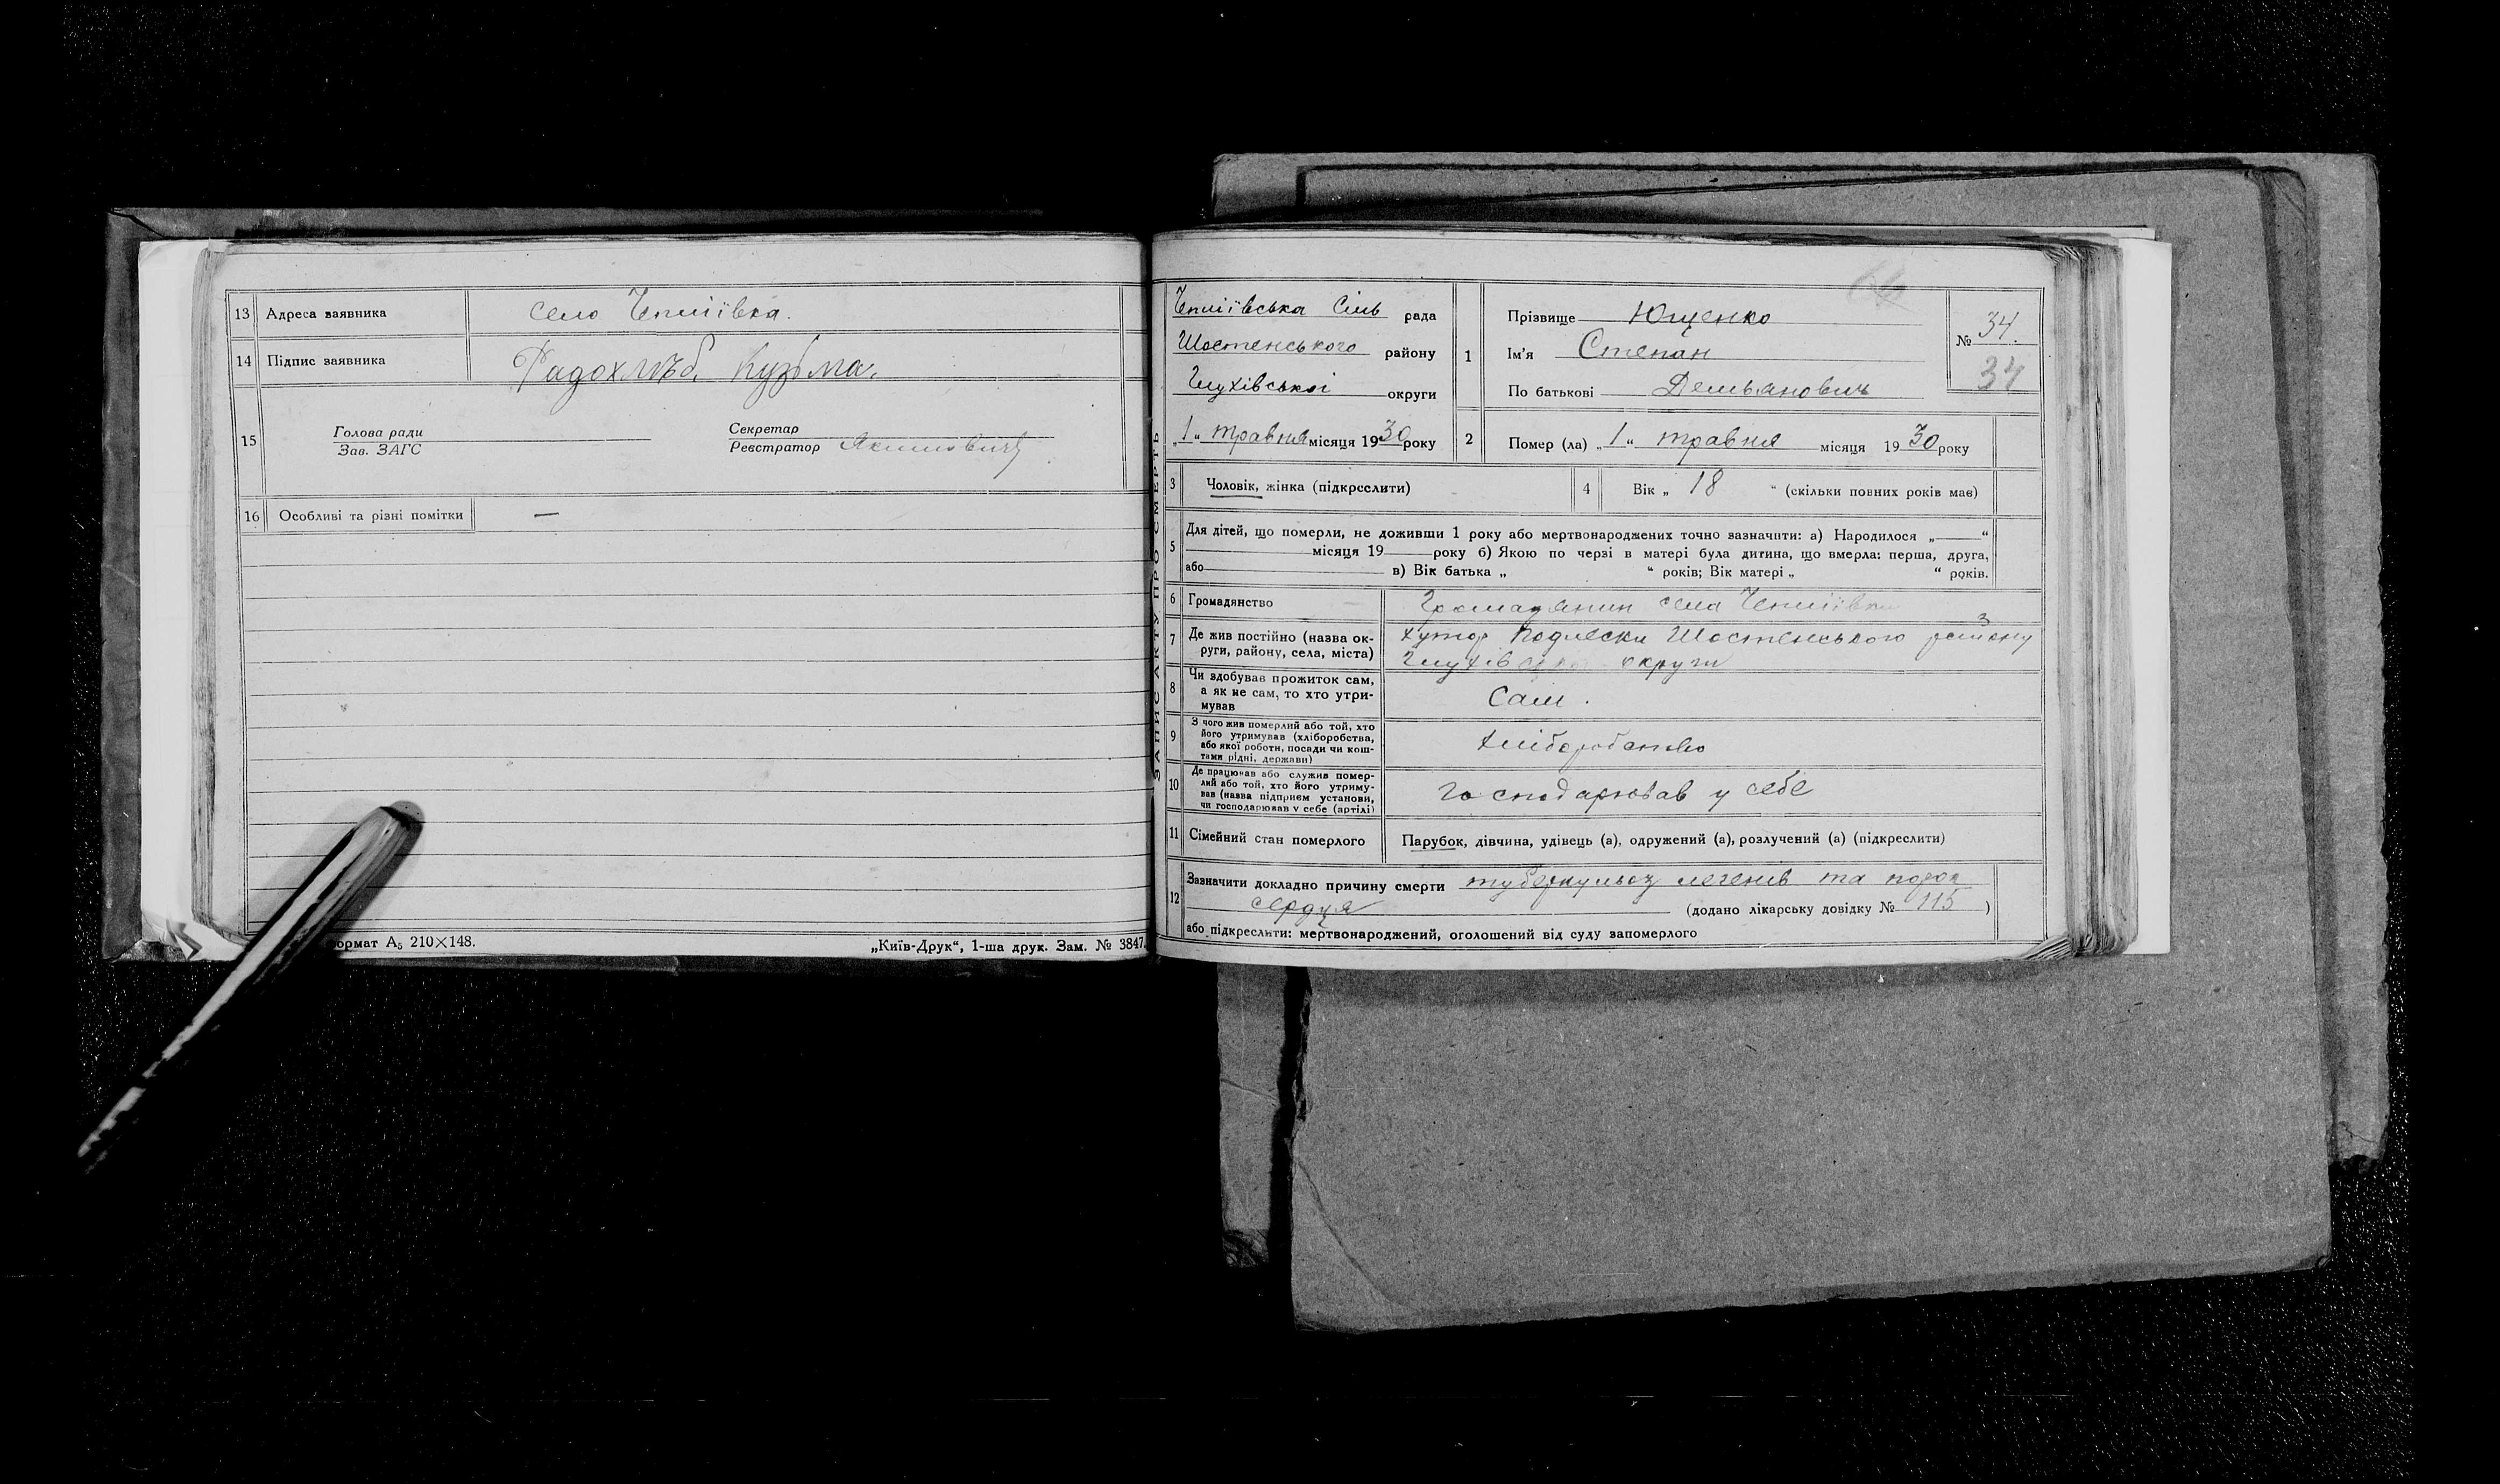 13 Адреса заявника село Чепліївка.
14 Підпис заявника Радохлѣб. Кузьма.
15 Голова ради
Зав. ЗАГС
Секретар
Реєстратор
16 Особливі та різні помітки —
формат А5 210×148.
„Київ-Друк“, 1-ша друк. Зам. № 3847.
ЗАПИС АКТУ ПРО СМЕРТЬ
Чепліївська Сіль рада
Шостенського району
Глухівської округи
„1“ травня місяця 1930 року
1 Прізвище Ющенко
Ім'я Степан
По батькові Демьянович
№ 34.
34
2 Помер (ла) „1“ травня місяця 1930 року
3 Чоловік, жінка (підкреслити)
4 Вік „ 18 “ (скільки повних років має)
5 Для дітей, що померли, не доживши 1 року або мертвонароджених точно зазначити: а) Народилося „ “
місяця 19 року б) Якою по черзі в матері була дитина, що вмерла: перша, друга,
або в) Вік батька „ “ років; Вік матері „ “ років.
6 Громадянство Громадянин села Чепліївки
7 Де жив постійно (назва ок-
руги, району, села, міста)
хутор Подлески Шостенського району
Глухівської округи
8 Чи здобував прожиток сам,
а як не сам, то хто утри-
мував
Сам.
9 З чого жив померлий або той, хто
його утримував (хліборобства,
або якої роботи, посади чи кош-
тами рідні, держави)
хліборобство
10 Де працював або служив помер-
лий або той, хто його утриму-
вав (назва підприєм установи,
чи господарював у себе (артілі)
господарював у себе
11 Сімейний стан померлого Парубок, дівчина, удівець (а), одружений (а), розлучений (а) (підкреслити)
12 Зазначити докладно причину смерти туберкульоз легенів та порок
сердця (додано лікарську довідку № 115 )
або підкреслити: мертвонароджений, оголошений від суду запомерлого